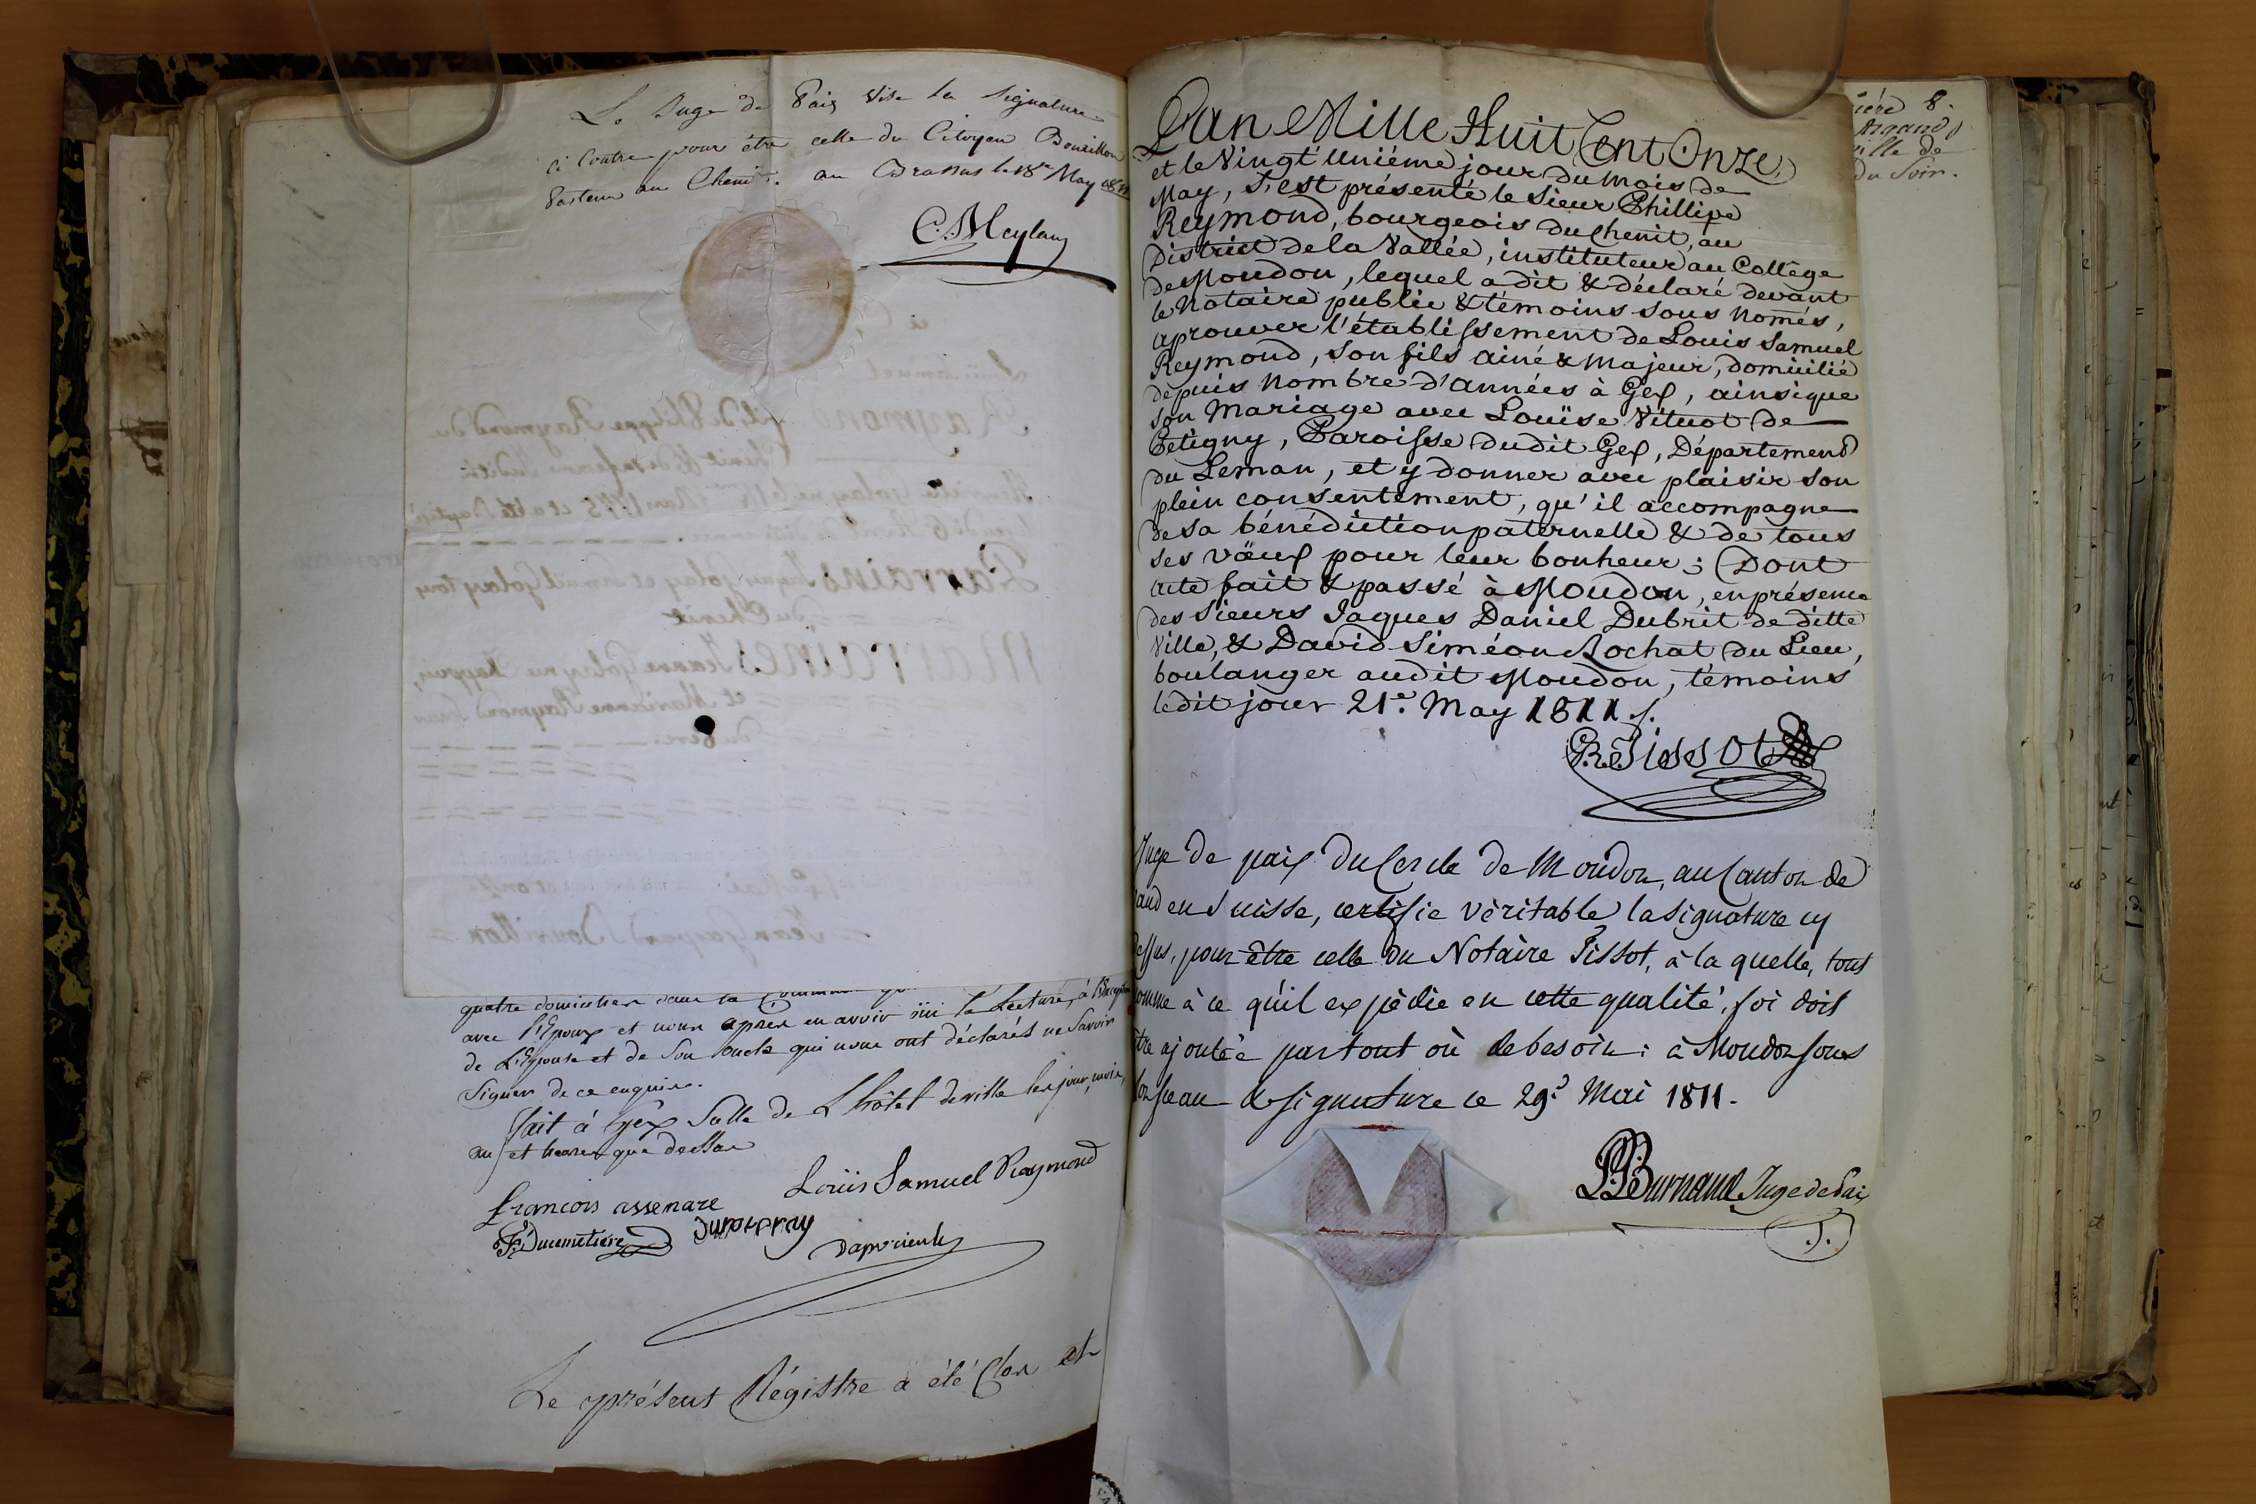 Le Juge de Paix vise la signature
ci contre pour être celle du Citoyen Bourillon
Pasteur au Chenit. au Brassus le 18e May 1811
C. Meylan
quatre domiciliés dans la
avec l'Epoux et nous apres en avoir oüi la Lecture, à l'Exception
de L'Epouse et de Son oncle qui nous ont déclarés ne Savoir
Signer de ce enquis.
fait à Gex Salle de L'hôtel de ville les jour, mois,
an et heure que dessus
Loüis Samuel Raymond
francois assenare
F. Ducimetiere
Le présent Régistre a été Clos et
L'an Mille Huit Cent Onze,
et le Vingt'uniéme jour du mois de
May, S'est présenté le Sieur Phillipe
Reymond, bourgeois du Chenit, au
District de la Vallée, instituteur au Collège
de Moudon, lequel a dit & déclaré devant
le Notaire public & témoins sous només,
aprouver l'établissement de Louis Samuel
Reymond, son fils ainé & majeur, domicilié
depuis nombre d'années à Gex, ainsique
son Mariage avec Louïse Vituot de
Pétigny, Paroisse dudit Gex, Département
du Leman, et y donner avec plaisir son
plein consentement, qu'il accompagne
de sa bénédiction paternelle & de tous
ses vœux pour leur bonheur; Dont
acte fait & passé à Moudon, en présence
des Sieurs Jaques Daniel Dubrit de ditte
Ville, & David Siméon Rochat du Lieu,
boulanger audit Moudon, témoins
ledit jour 21e. May 1811.
Tissot
Juge de paix du Cercle de Moudon, au Canton de
Vaud en Suisse, certifie véritable la signature cy
dessus, pour être celle du Notaire Tissot, à la quelle, tout
comme à ce qu'il expèdie en cette qualité, foi doit
être ajoutée partout où de besoin: à Moudon sous
son sceau & signature ce 29e Mai 1811.
Burnand Juge de Paix
8.
Arnaud
ville de
du Soir.